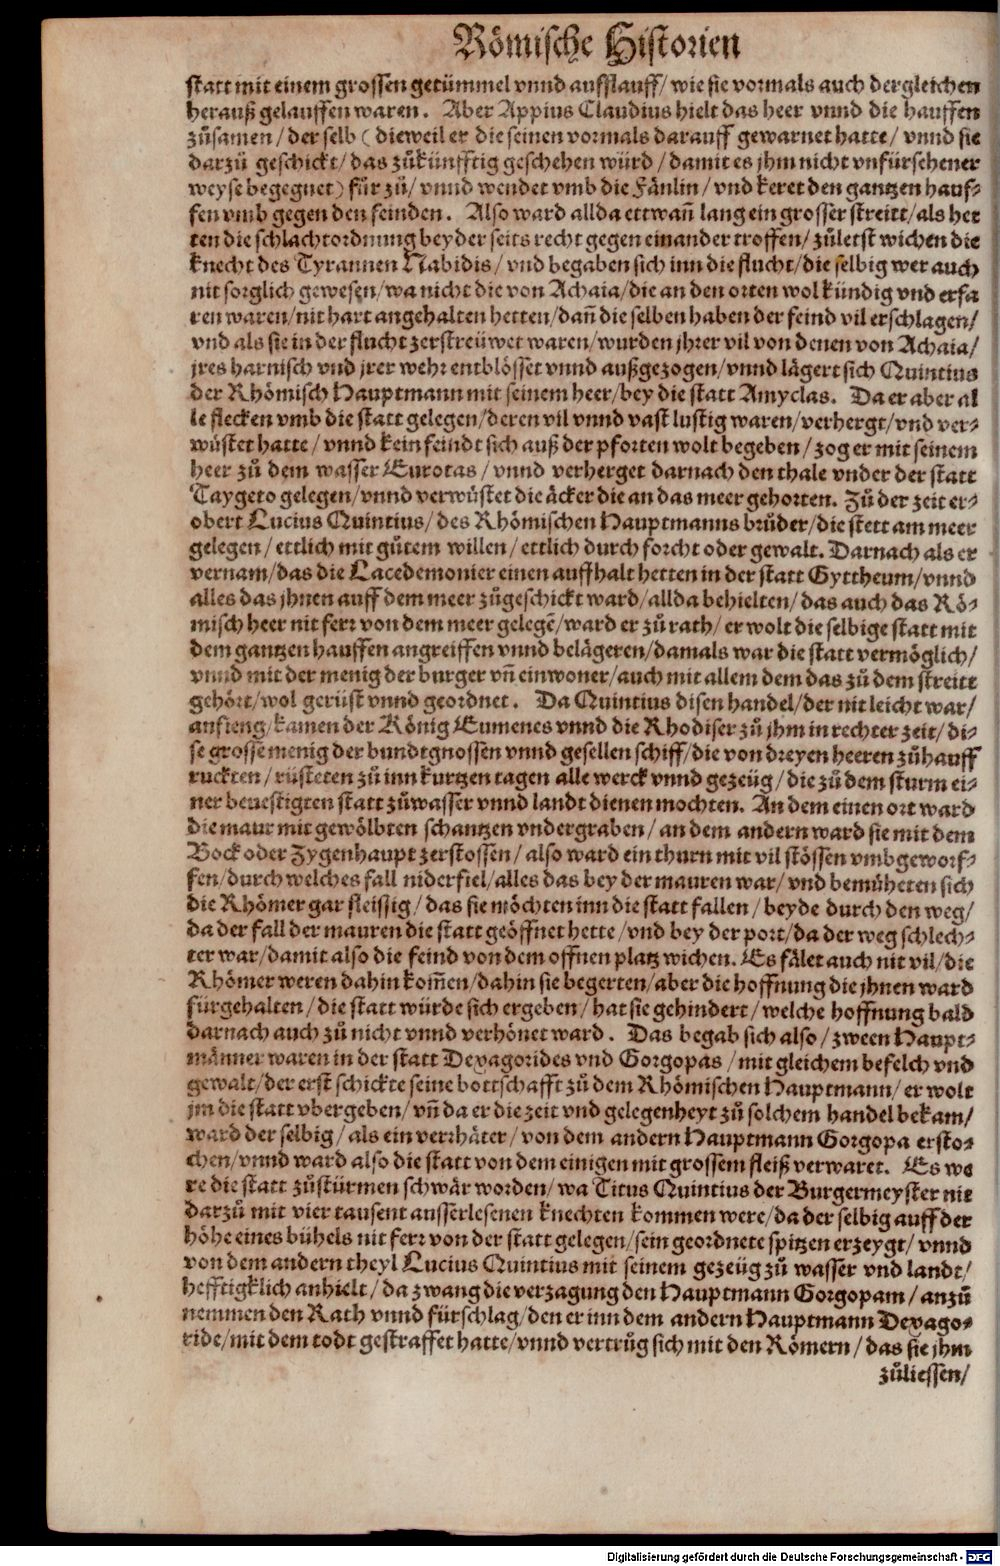 Römische Historien
statt mit einem grossen getümmel vnnd aufflauff/ wie sie vormals auch dergleichen
herauß gelauffen waren. Aber Appius Claudius hielt das heer vnnd die hauffen
zůsamen/ der selb (dieweil er die seinen vormals darauff gewarnet hatte/ vnnd sie
darzů geschickt/ das zůkünfftig geschehen würd/ damit es jhm nicht vnfürsehener
weyse begegnet) für zů/ vnnd wendet vmb die Fänlin/ vnd keret den gantzen hauf-
fen vmb gegen den feinden. Also ward allda ettwañ lang ein grosser streitt/ als het
ten die schlachtordnung beyder seits recht gegen einander troffen/ zůletst wichen die
knecht des Tyrannen Nabidis/ vnd begaben sich inn die flucht/ die selbig wer auch
nit sorglich gewesen/ wa nicht die von Achaia/ die an den orten wol kündig vnd erfa
ren waren/ nit hart angehalten hetten/ dañ die selben haben der feind vil erschlagen/
vnd als sie in der flucht zerstreüwet waren/ wurden jhrer vil von denen von Achaia/
jres harnisch vnd jrer wehr entblösset vnnd außgezogen/ vnnd lägert sich Quintius
der Rhömisch Hauptmann mit seinem heer/ bey die statt Amyclas. Da er aber al
le flecken vmb die statt gelegen/ deren vil vnnd vast lustig waren/ verhergt/ vnd ver-
wüstet hatte/ vnnd kein feindt sich auß der pforten wolt begeben/ zog er mit seinem
heer zů dem wasser Eurotas/ vnnd verherget darnach den thale vnder der statt
Taygeto gelegen/ vnnd verwüstet die äcker die an das meer gehorten. Zů der zeit er-
obert Lucius Quintius/ des Rhömischen Hauptmanns brůder/ die stett am meer
gelegen/ ettlich mit gůtem willen/ ettlich durch forcht oder gewalt. Darnach als er
vernam/ das die Lacedemonier einen auffhalt hetten in der statt Gyttheum/ vnnd
alles das jhnen auff dem meer zůgeschickt ward/ allda behielten/ das auch das Rö-
misch heer nit ferr von dem meer gelegē/ ward er zů rath/ er wolt die selbige statt mit
dem gantzen hauffen angreiffen vnnd belägeren/ damals war die statt vermöglich/
vnnd mit der menig der burger vñ einwoner/ auch mit allem dem das zů dem streitt
gehört/ wol gerüst vnnd geordnet. Da Quintius disen handel/ der nit leicht war/
anfieng/ kamen der König Eumenes vnnd die Rhodiser zů jhm in rechter zeit/ di-
se grosse menig der bundtgnossen vnnd gesellen schiff/ die von dreyen heeren zůhauff
ruckten/ rüsteten zů inn kurtzen tagen alle werck vnnd gezeüg/ die zů dem sturm ei-
ner beuestigten statt zůwasser vnnd landt dienen mochten. An dem einen ort ward
die maur mit gewölbten schantzen vndergraben/ an dem andern ward sie mit dem
Bock oder Zygenhaupt zerstossen/ also ward ein thurn mit vil stössen vmbgeworf-
fen/ durch welches fall niderfiel/ alles das bey der mauren war/ vnd bemüheten sich
die Rhömer gar fleissig/ das sie möchten inn die statt fallen/ beyde durch den weg/
da der fall der mauren die statt geöffnet hette/ vnd bey der port/ da der weg schlech-
ter war/ damit also die feind von dem offnen platz wichen. Es fälet auch nit vil/ die
Rhömer weren dahin kom̄en/ dahin sie begerten/ aber die hoffnung die jhnen ward
fürgehalten/ die statt würde sich ergeben/ hat sie gehindert/ welche hoffnung bald
darnach auch zů nicht vnnd verhönet ward. Das begab sich also/ zween Haupt-
männer waren in der statt Dexagorides vnd Gorgopas/ mit gleichem befelch vnd
gewalt/ der erst schickte seine bottschafft zů dem Rhömischen Hauptmann/ er wolt
jm die statt vbergeben/ vñ da er die zeit vnd gelegenheyt zů solchem handel bekam/
ward der selbig/ als ein verrhäter/ von dem andern Hauptmann Gorgopa ersto-
chen/ vnnd ward also die statt von dem einigen mit grossem fleiß verwaret. Es we
re die statt zůstürmen schwär worden/ wa Titus Quintius der Burgermeyster nit
darzů mit vier tausent ausserlesenen knechten kommen were/ da der selbig auff der
höhe eines bühels nit ferr von der statt gelegen/ sein geordnete spitzen erzeygt/ vnnd
von dem andern theyl Lucius Quintius mit seinem gezeüg zů wasser vnd landt/
hefftigklich anhielt/ da zwang die verzagung den Hauptmann Gorgopam/ anzů
nemmen den Rath vnnd fürschlag/ den er inn dem andern Hauptmann Dexago-
ride/ mit dem todt gestraffet hatte/ vnnd vertrůg sich mit den Römern/ das sie jhm
zůliessen/
Digitalisierung gefördert durch die Deutsche Forschungsgemeinschaft - DFG